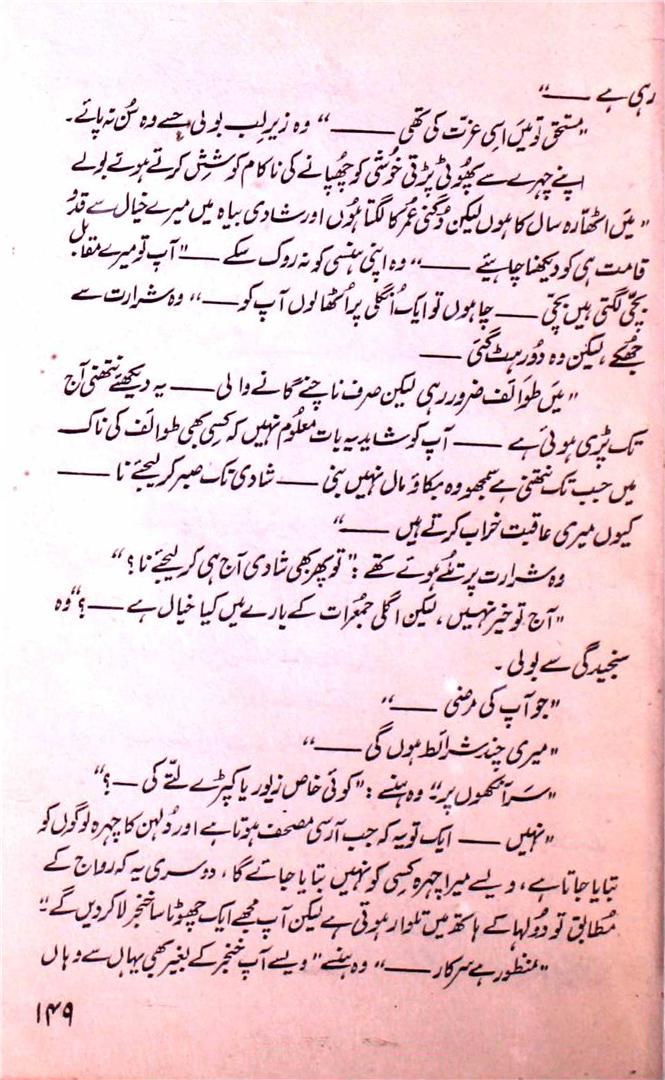 رہی ہے ——"
"مستحق تو میں اسی عزت کی تھی ——" وہ زیرِ لب بولی جسے وہ سُن نہ پائے۔
اپنے چہرے سے پھُوٹی پڑتی خوشی کو چھُپانے کی ناکام کوشش کرتے ہوئے بولے
"میں اٹھارہ سال کا ہوں لیکن دُگنی عمر کا لگتا ہُوں اور شادی بیاہ میں میرے خیال سے قد و
قامت ہی کو دیکھنا چاہئیے ——" وہ اپنی ہنسی کو نہ روک سکے —— "آپ تو میرے مقابل
بچّی لگتی ہیں بچّی —— چاہوں تو ایک اُنگلی پر اُٹھا لوں آپ کو ——" وہ شرارت سے
جھُکے، لیکن وہ دُور ہٹ گئی ——
"میں طوائف ضرور رہی لیکن صرف ناچنے گانے والی —— یہ دیکھئے نتھنی آج
تک پڑی ہوئی ہے —— آپ کو شاید یہ بات معلُوم نہیں کہ کسی بھی طوائف کی ناک
میں جب تک نتھنی ہے سمجھو وہ بکاؤ مال نہیں بنی —— شادی تک صبر کر لیجئے نا ——
کیوں میری عاقبت خراب کرتے ہیں ——"
وہ شرارت پر تلُے ہوئے تھے: "تو پھر بھی شادی آج ہی کر لیجئے نا؟"
"آج تو خیر نہیں، لیکن اگلی جمعرات کے بارے میں کیا خیال ہے ——؟" وہ
سنجیدگی سے بولی۔
"جو آپ کی مرضی ——"
"میری چند شرائط ہوں گی ——"
"سر آنکھوں پر" وہ ہنسے: "کوئی خاص زیور یا کپڑے لتّے کی ——؟"
"نہیں —— ایک تو یہ کہ جب آرسی مصحف ہوتا ہے اور دُولہن کا چہرہ لوگوں کو
بتایا جاتا ہے، ویسے میرا چہرہ کسی کو نہیں بتایا جائے گا، دوسری یہ کہ رواج کے
مُطابق تو دُولہا کے ہاتھ میں تلوار ہوتی ہے لیکن آپ مجھے ایک چھوٹا سا خنجر لا کر دیں گے۔"
"منظور ہے سرکار ——" وہ ہنسے "ویسے آپ خنجر کے بغیر بھی یہاں سے وہاں
۱۴۹